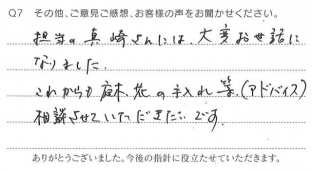 Q7 その他、ご意見ご感想、お客様の声をお聞かせください。
担当の真崎さんには、大変お世話に
なりました。
これからも庭木、花の手入れ等(アドバイス)
相談させていただきたいです。
ありがとうございました。今後の指針に役立たせていただきます。